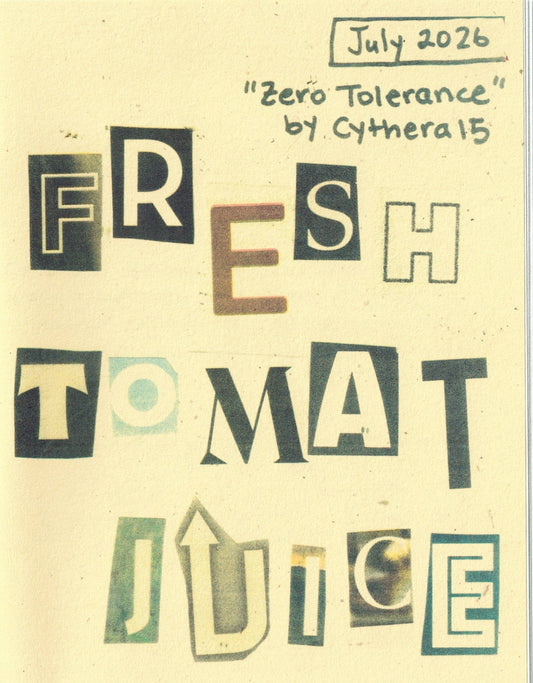 July 2026
"Zero Tolerance"
by Cythera15
FRESH
TOMAT
JUICE